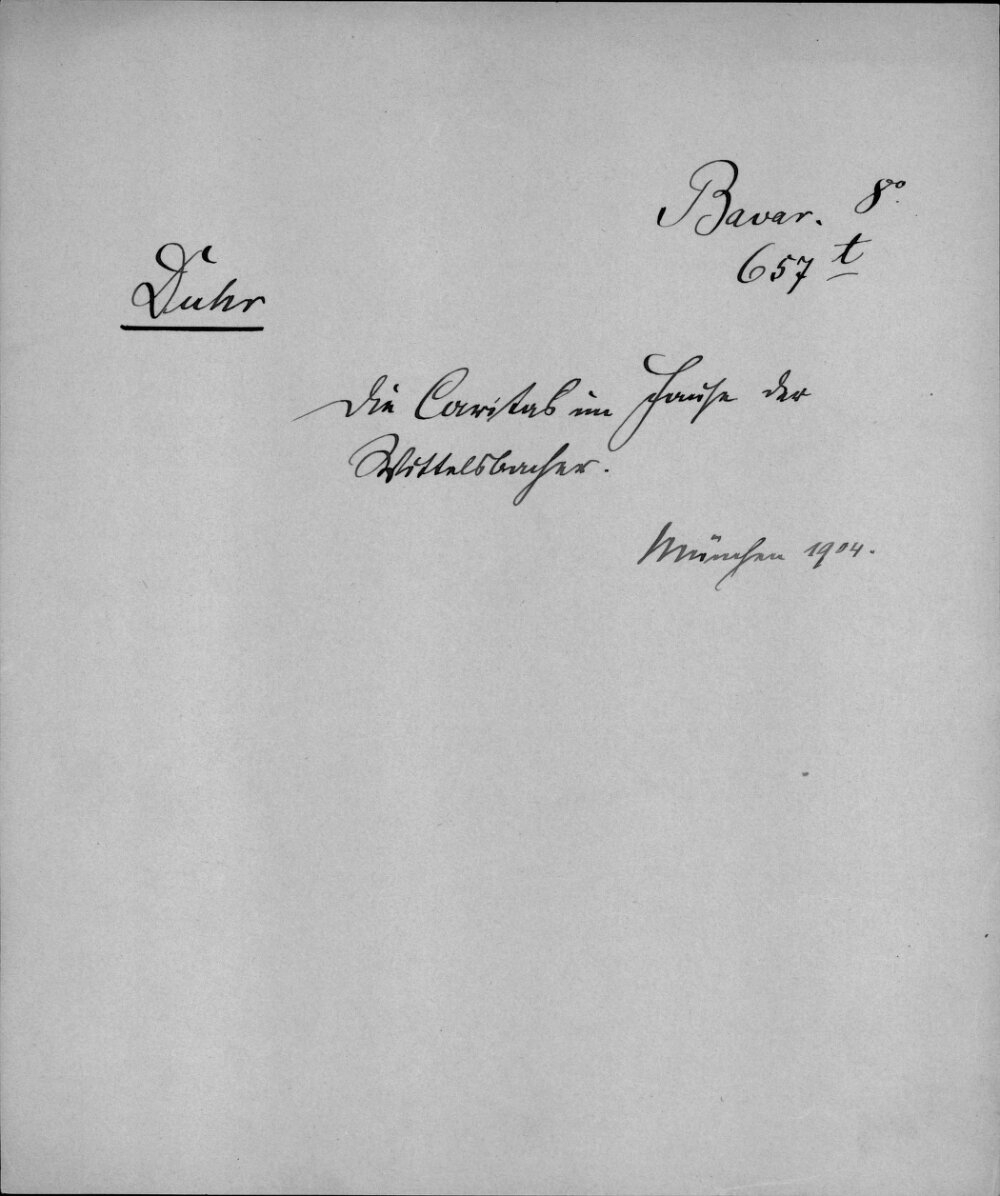 Bavar. 8°.
657 t
Duhr
Die Caritas im Hause der
Wittelsbacher.
München 1904.